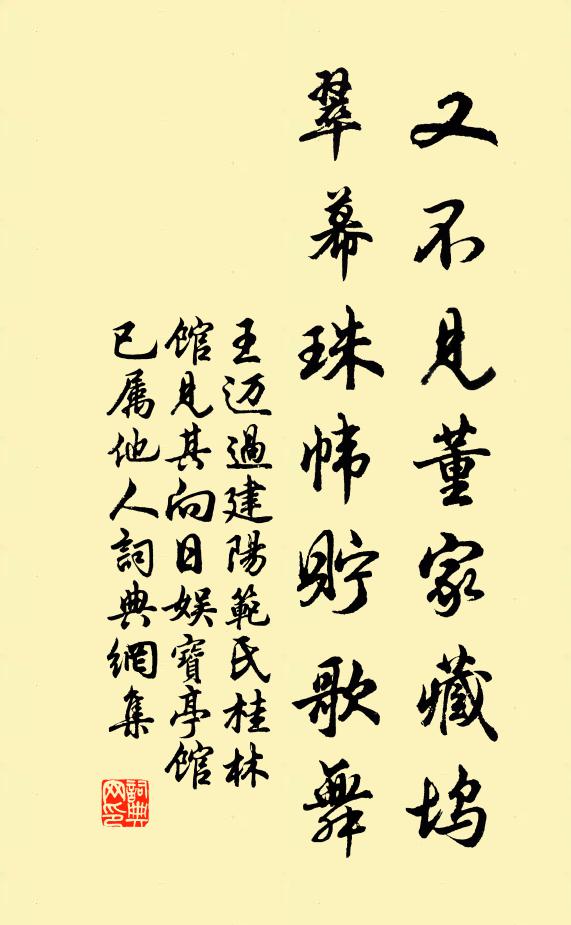 又不見董家藏塢
翠幕珠幃貯歌舞
王迈過建陽範氏桂林
馆見其向日娱寶亭馆
已属他人詞典網集
詞典
网印